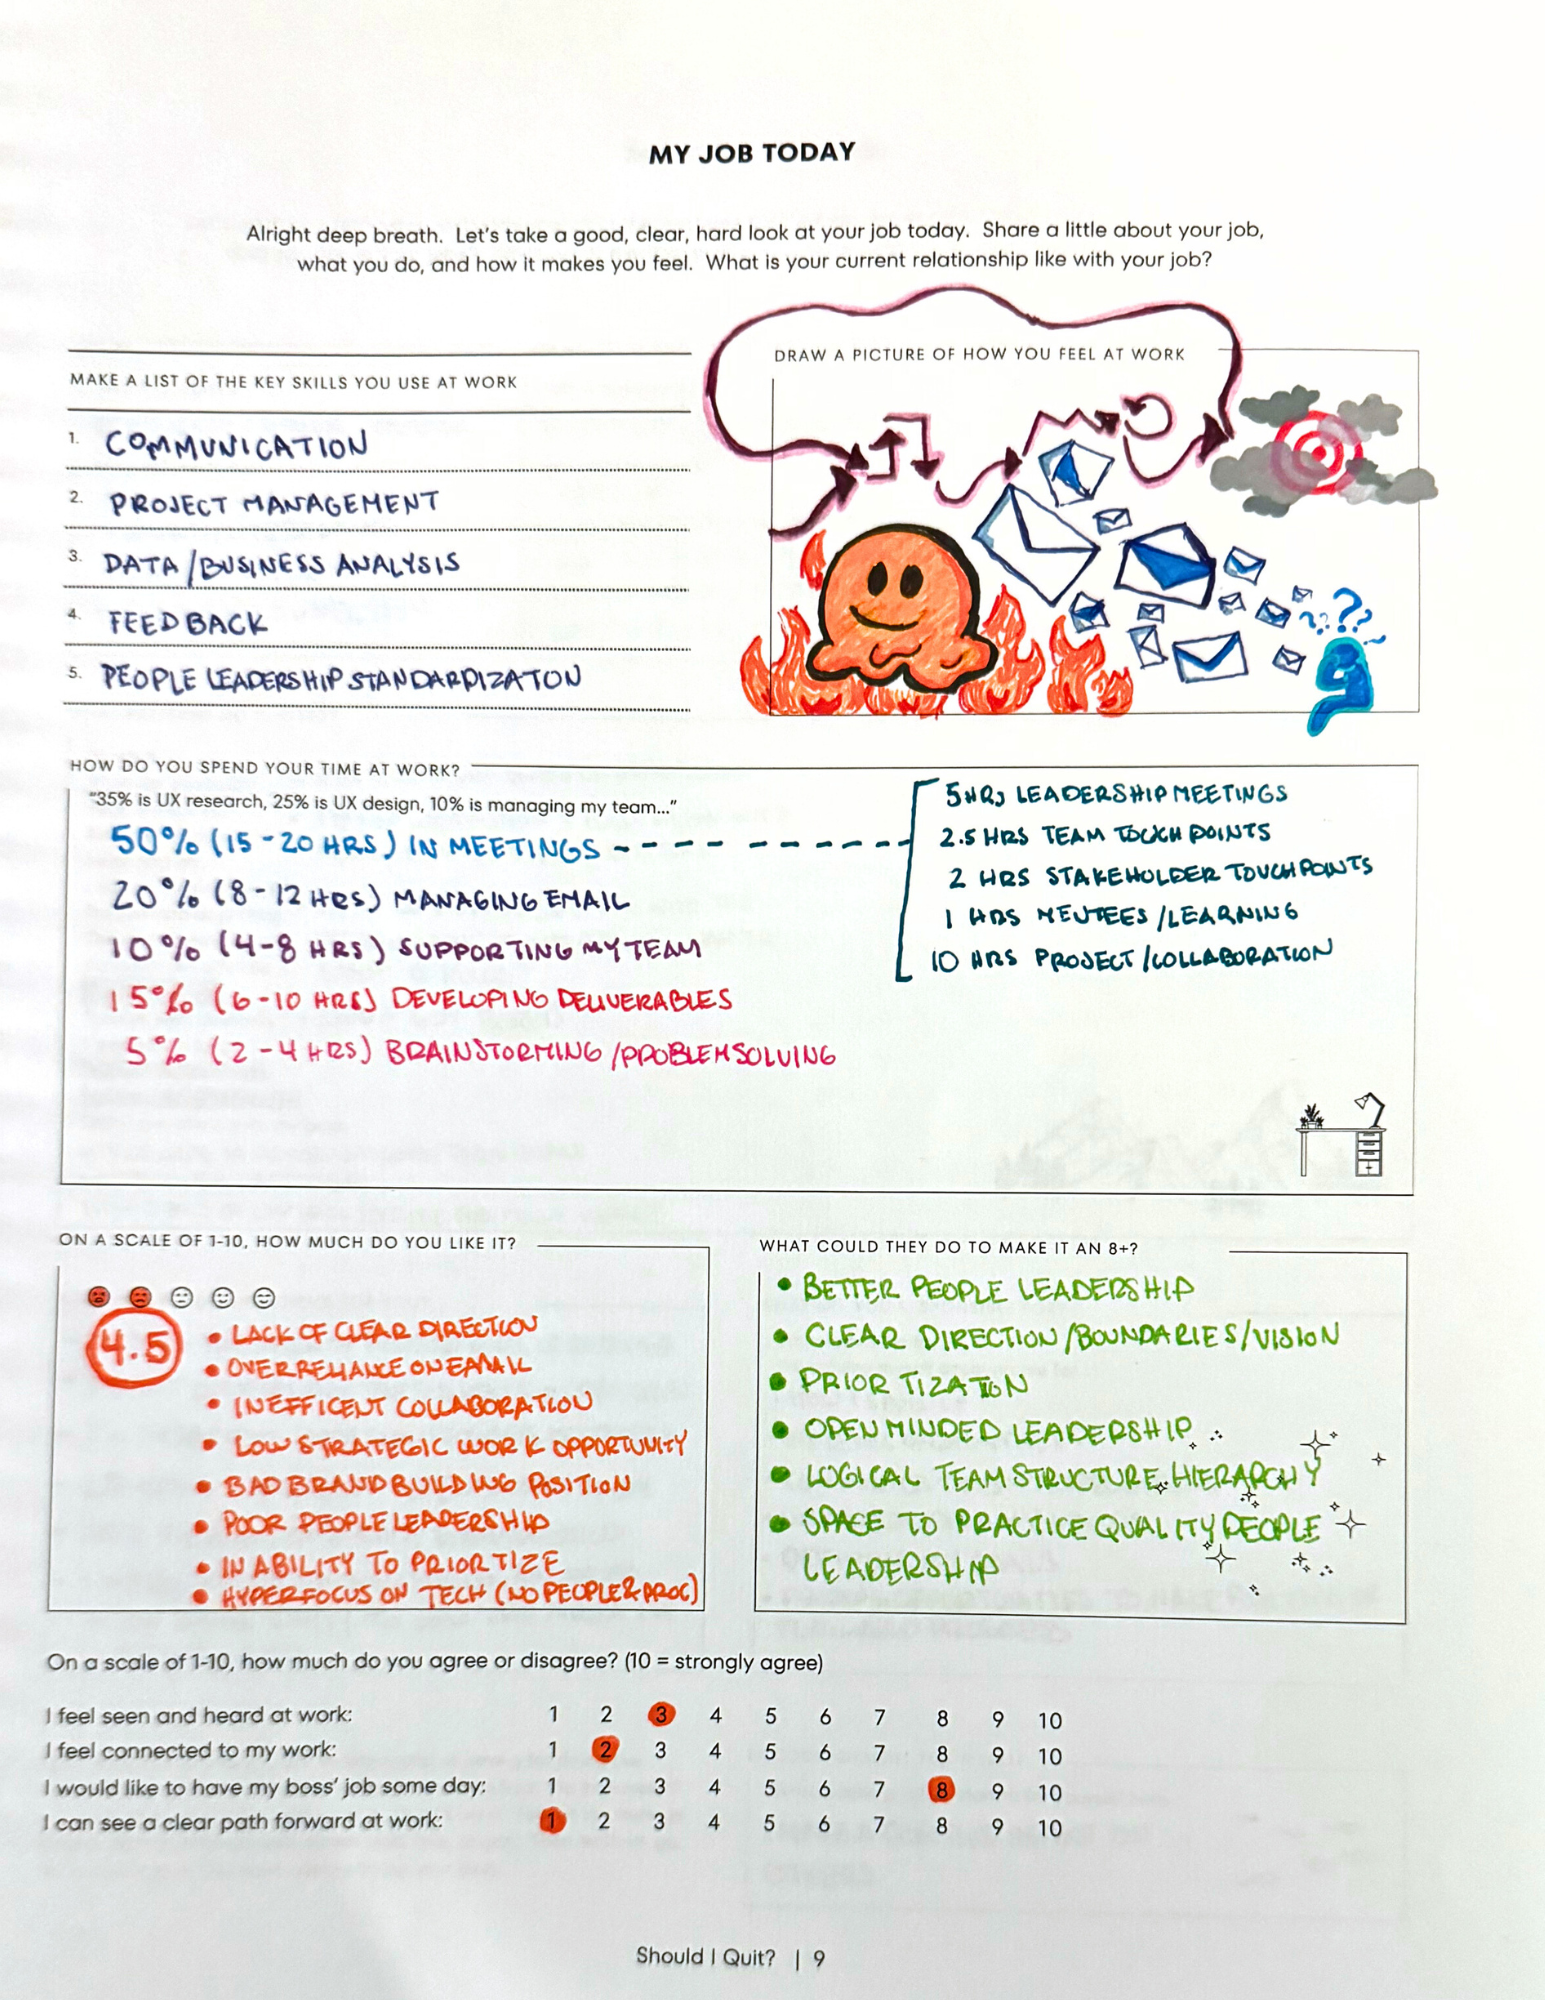 MY JOB TODAY
Alright deep breath. Let's take a good, clear, hard look at your job today. Share a little about your job,
what you do, and how it makes you feel. What is your current relationship like with your job?
MAKE A LIST OF THE KEY SKILLS YOU USE AT WORK
1. COMMUNICATION
2. PROJECT MANAGEMENT
3. DATA/BUSINESS ANALYSIS
4. FEEDBACK
5. PEOPLE LEADERSHIP STANDARDIZATON
DRAW A PICTURE OF HOW YOU FEEL AT WORK
? ? ? ?
HOW DO YOU SPEND YOUR TIME AT WORK?
"35% is UX research, 25% is UX design, 10% is managing my team..."
50% (15-20 HRS) IN MEETINGS
20% (8-12 HRS) MANAGING EMAIL
10% (4-8 HRS) SUPPORTING MY TEAM
15% (6-10 HRS) DEVELOPING DELIVERABLES
5% (2-4 HRS) BRAINSTORMING/PROBLEM SOLVING
5 HRS LEADERSHIP MEETINGS
2.5 HRS TEAM TOUCH POINTS
2 HRS STAKEHOLDER TOUCHPOINTS
1 HRS MENTEES/LEARNING
10 HRS PROJECT/COLLABORATION
ON A SCALE OF 1-10, HOW MUCH DO YOU LIKE IT?
4.5
• LACK OF CLEAR DIRECTION
• OVERRELIANCE ON EMAIL
• INEFFICENT COLLABORATION
• LOW STRATEGIC WORK OPPORTUNITY
• BAD BRAND BUILDING POSITION
• POOR PEOPLE LEADERSHIP
• INABILITY TO PRIORTIZE
• HYPERFOCUS ON TECH (NO PEOPLE & PROC)
WHAT COULD THEY DO TO MAKE IT AN 8+?
• BETTER PEOPLE LEADERSHIP
• CLEAR DIRECTION/BOUNDARIES/VISION
• PRIORTIZATON
• OPEN MINDED LEADERSHIP
• LOGICAL TEAM STRUCTURE, HIERARCHY
• SPACE TO PRACTICE QUALITY PEOPLE
LEADERSHIP
On a scale of 1-10, how much do you agree or disagree? (10 = strongly agree)
I feel seen and heard at work: 1 2 3 4 5 6 7 8 9 10
I feel connected to my work: 1 2 3 4 5 6 7 8 9 10
I would like to have my boss' job some day: 1 2 3 4 5 6 7 8 9 10
I can see a clear path forward at work: 1 2 3 4 5 6 7 8 9 10
Should I Quit? | 9